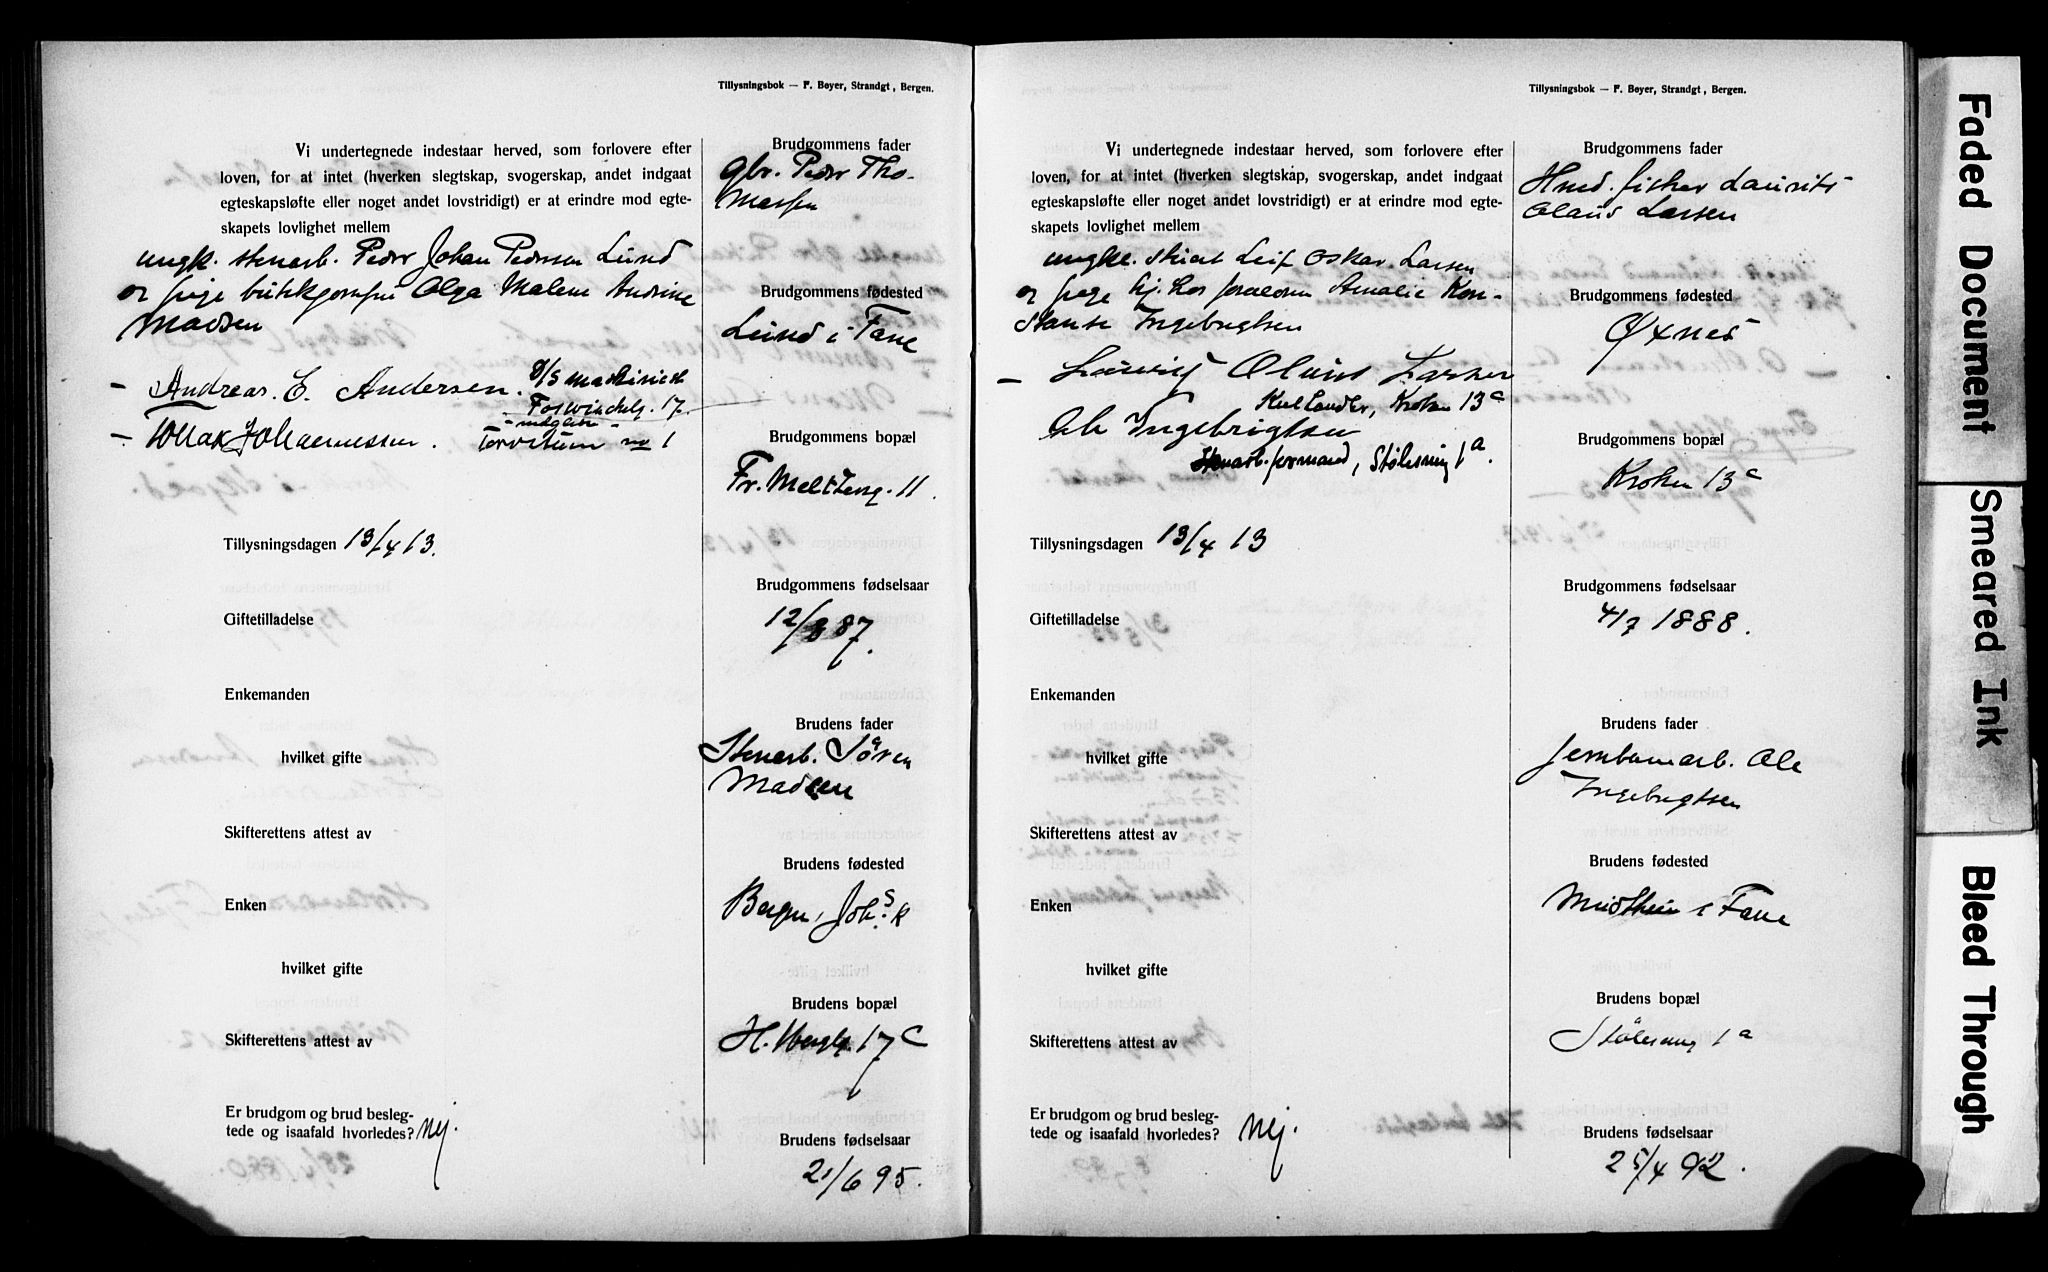 Tillysningsbok — F. Bøyer, Strandgt, Bergen.
Vi undertegnede indestaar herved, som forlovere efter
loven, for at intet (hverken slegtskap, svogerskap, andet indgaat
egteskapsløfte eller noget andet lovstridigt) er at erindre mod egte-
skapets lovlighet mellem
ungk. stenarb. Peder Johan Pedersen Lund
og pige butikjomfru Olga Malene Andrine
Madsen
— Andreas. E. Andersen. D/S maskinist
17.
— Johannessen. no 1
Tillysningsdagen 13/4 13.
Giftetilladelse
Enkemanden
hvilket gifte
Skifterettens attest av
Enken
hvilket gifte
Skifterettens attest av
Er brudgom og brud besleg-
tede og isaafald hvorledes? Nej.
Brudgommens fader
gbr. Peder Tho-
massen
Brudgommens fødested
Lund i Fane
Brudgommens bopæl
Fr. Meltzersg. 11.
Brudgommens fødselsaar
12/8 87.
Brudens fader
Stenarb. Søren
Madsen
Brudens fødested
Bergen, Johs. k
Brudens bopæl
H. 17 c
Brudens fødselsaar
21/6 95.
Tillysningsbok — F. Bøyer, Strandgt, Bergen.
Vi undertegnede indestaar herved, som forlovere efter
loven, for at intet (hverken slegtskap, svogerskap, andet indgaat
egteskapsløfte eller noget andet lovstridigt) er at erindre mod egte-
skapets lovlighet mellem
ungk. Leif Oskar Larsen
og pige hj. hos forældren Amalie Kon-
stanse Ingebrigtsen
— Olaus Larsen
Kroken 13c
Ole Ingebrigtsen
formand, Stølesmug 1a.
Tillysningsdagen 13/4 13
Giftetilladelse
Enkemanden
hvilket gifte
Skifterettens attest av
Enken
hvilket gifte
Skifterettens attest av
Er brudgom og brud besleg-
tede og isaafald hvorledes? Nej.
Brudgommens fader
Hmd. fisker Laurits
Olaus Larsen
Brudgommens fødested
Øxnes
Brudgommens bopæl
Kroken 13c
Brudgommens fødselsaar
4/7 1888.
Brudens fader
jernbanearb. Ole
Ingebrigtsen
Brudens fødested
Midttun i Fane
Brudens bopæl
Stølesmug 1a
Brudens fødselsaar
25/4 92.
Faded Document
Smeared Ink
Bleed Through